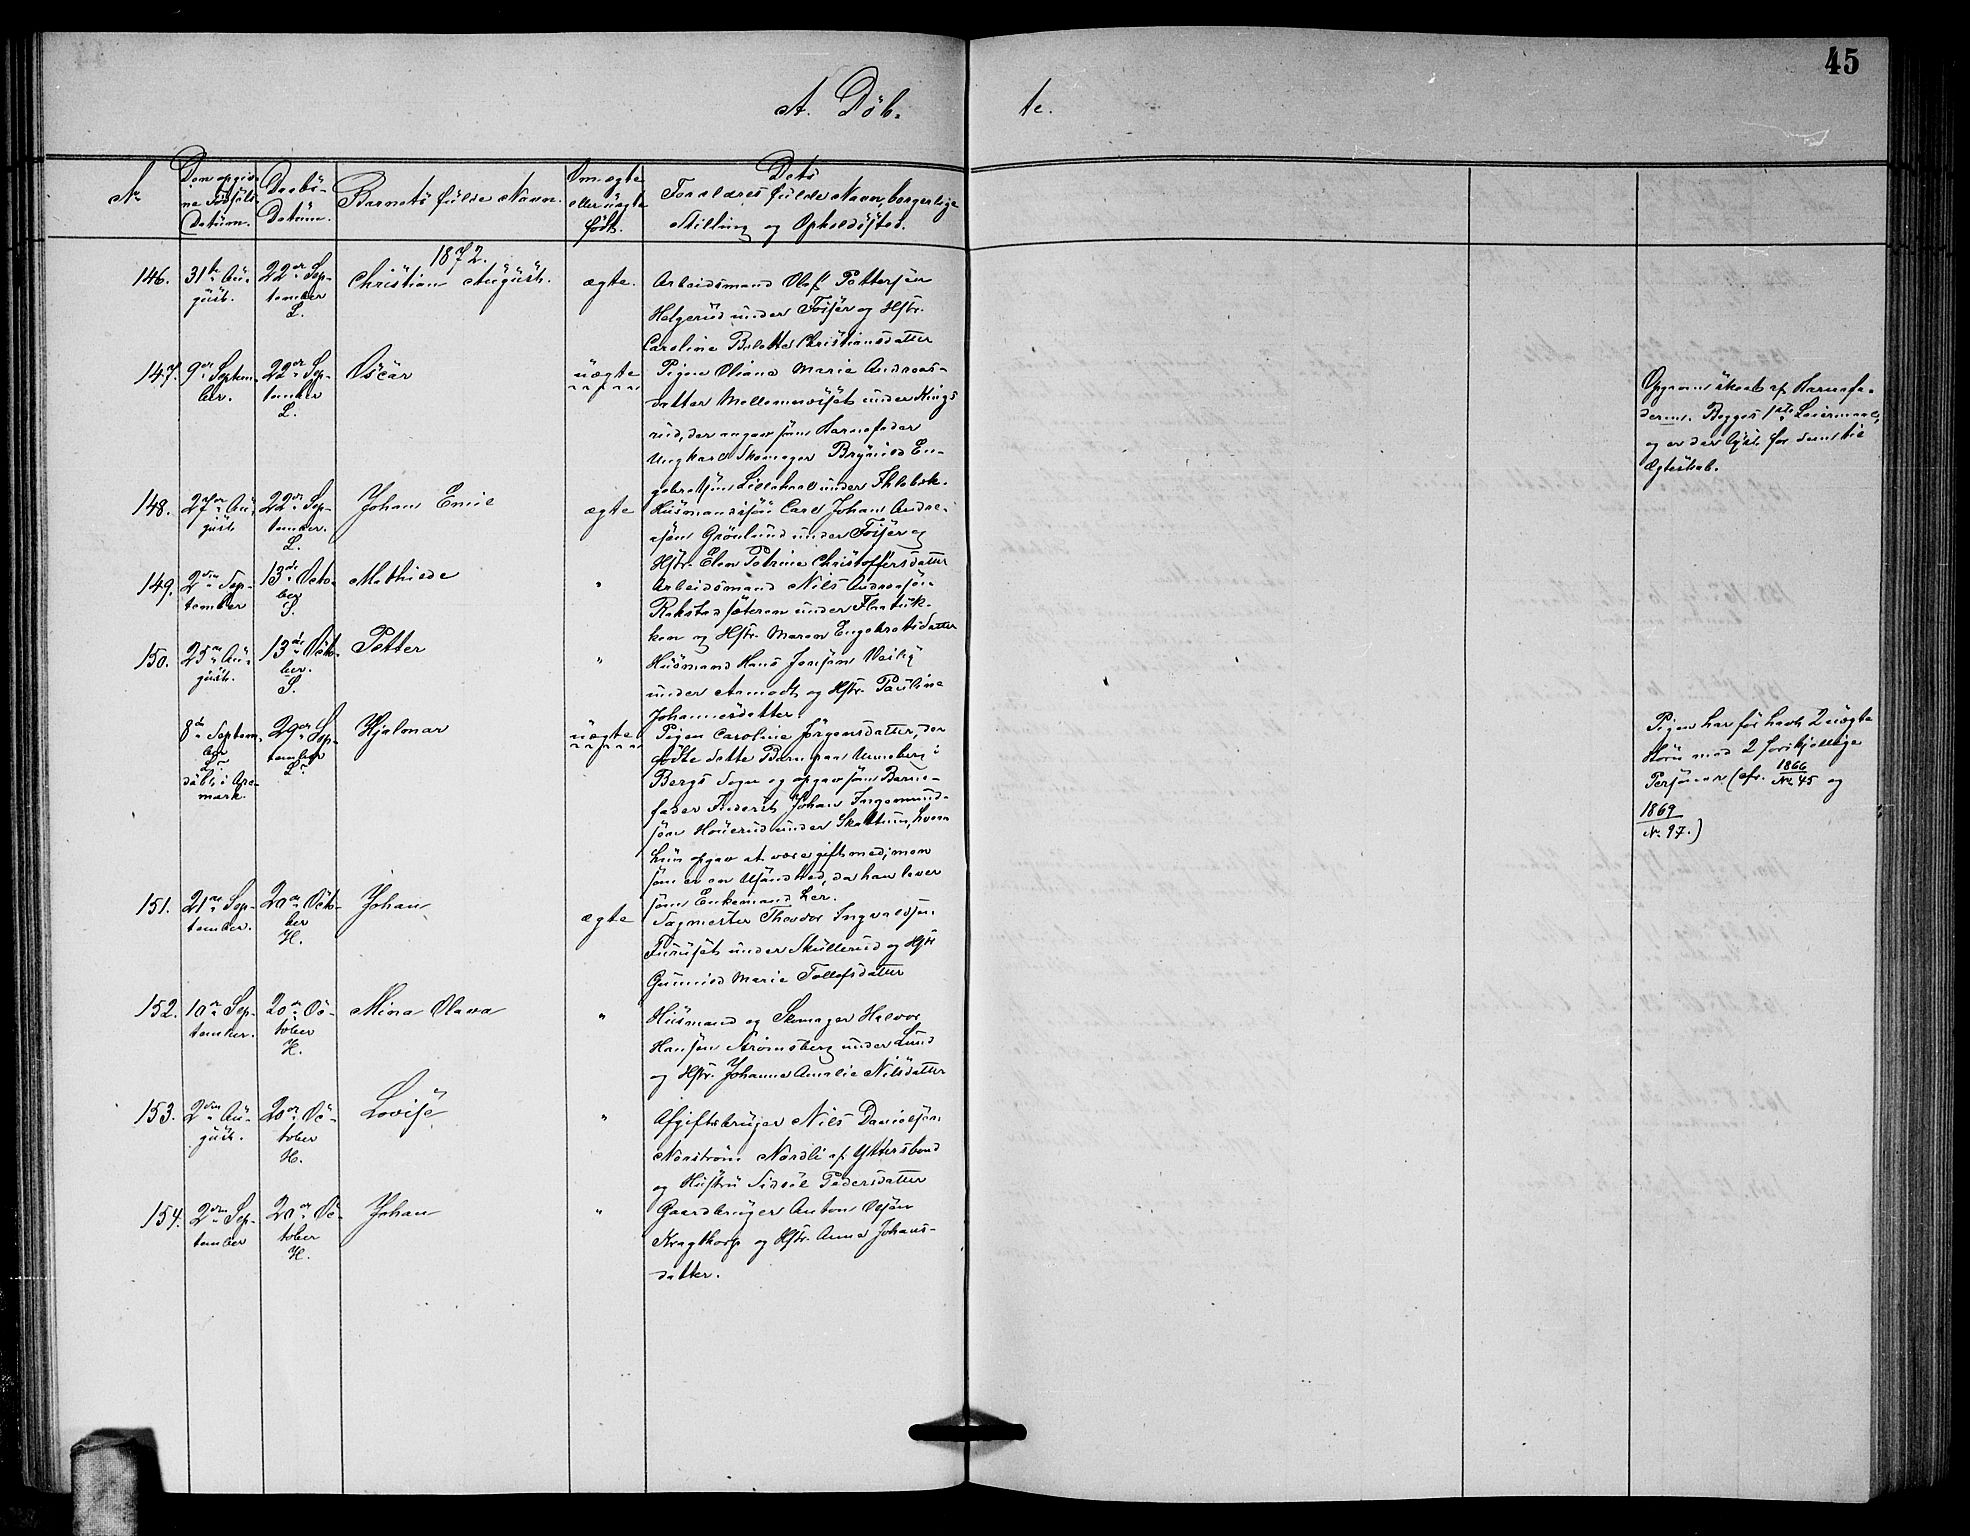 45
A. Döb-
te.
No
Den opgiv-
ne Födsels-
Datum.
Daabs-
Datum.
Barnets fulde Navn.
Om ægte
eller uægte
født.
Dets
Forældres fulde Navn, borgerlige
Stilling og Opholdssted.
1872.
146.
31te Au-
gust.
22de Sep-
tember
L.
Christian August.
ægte.
Arbeidsmand Olaf Pettersen
Helgerud under Fosser og Hstr.
Caroline Christiansdatter
147.
9de Septem-
ber.
22de Sep-
tember
L.
Oscar
uægte
Pigen Oliana Marie Andreas-
datter Mellemrøset under Kings-
rud, der angav som Barnefader
Ungkarl Skomager Brynild En-
gebretsen Lillekaas under Ihlebek.
Opgaven skeet af Barnefa-
deren. Begges 1ste Leiermaal,
og er der lyst for dem til
Ægteskab.
148.
27de Au-
gust
22de Sep-
tember.
L.
Johan Emil
ægte
Husmandssøn Carl Johan Andre-
sen Grönlund under Fosser og
Hstr. Elen Petrine Christoffersdatter
149.
2den Sep-
tember
13de Octo-
ber
S.
Mathilde
"
Arbeidsmand Nils Andreasen
Rakstadsæteren under
og Hstr. Maren Engebretsdatter
150.
25de Au-
gust.
13de Octo-
ber.
S.
Petter
"
Husmand Hans Jensen
under og Hstr. Pauline
Johannesdatter.
8de Septem-
ber
L.
döbt i Are-
mark.
29de Sep-
tember
L.
Hjalmar
uægte
Pigen Caroline Jörgensdatter, der
födte dette Barn paa Unneberg i
Bergs Sogn og opgav som Barne-
fader Inderst Johan Ingemund-
sen under Skattum, hvem
hun opgav at være gift med, men
som er en Usandhed, da han lever
som Enkemand her.
Pigen har før havt 2 uægte
Börn med 2 forskjellige
Personer (cfr. 1866
No 45 og
1869
No 97.)
151.
21de Sep-
tember.
20de Octo-
ber
H.
Johan
ægte
Sagmester Theodor Ingvaldsen
Furuset under Skullerud og Hstr
Gunnild Marie Tollefsdatter
152.
10de Sep-
tember.
20de Oc-
tober
H.
Mina Olava
"
Husmand og Skomager Halvor
Hansen Strömsberg under Lund
og Hstr. Johanne Amalie Nilsdatter
153.
2den Au-
gust.
20de Oc-
tober
H.
Lovise
"
Afgiftsbruger Nils Danielsen
Norström Nordli af Yttersbond
og Hustru Sidsel Pedersdatter
154.
2den Sep-
tember
20de Oc-
tober
H.
Johan
"
Gaardbruger Anton Olsen
Kragtorp og Hstr. Anne Johans-
datter.